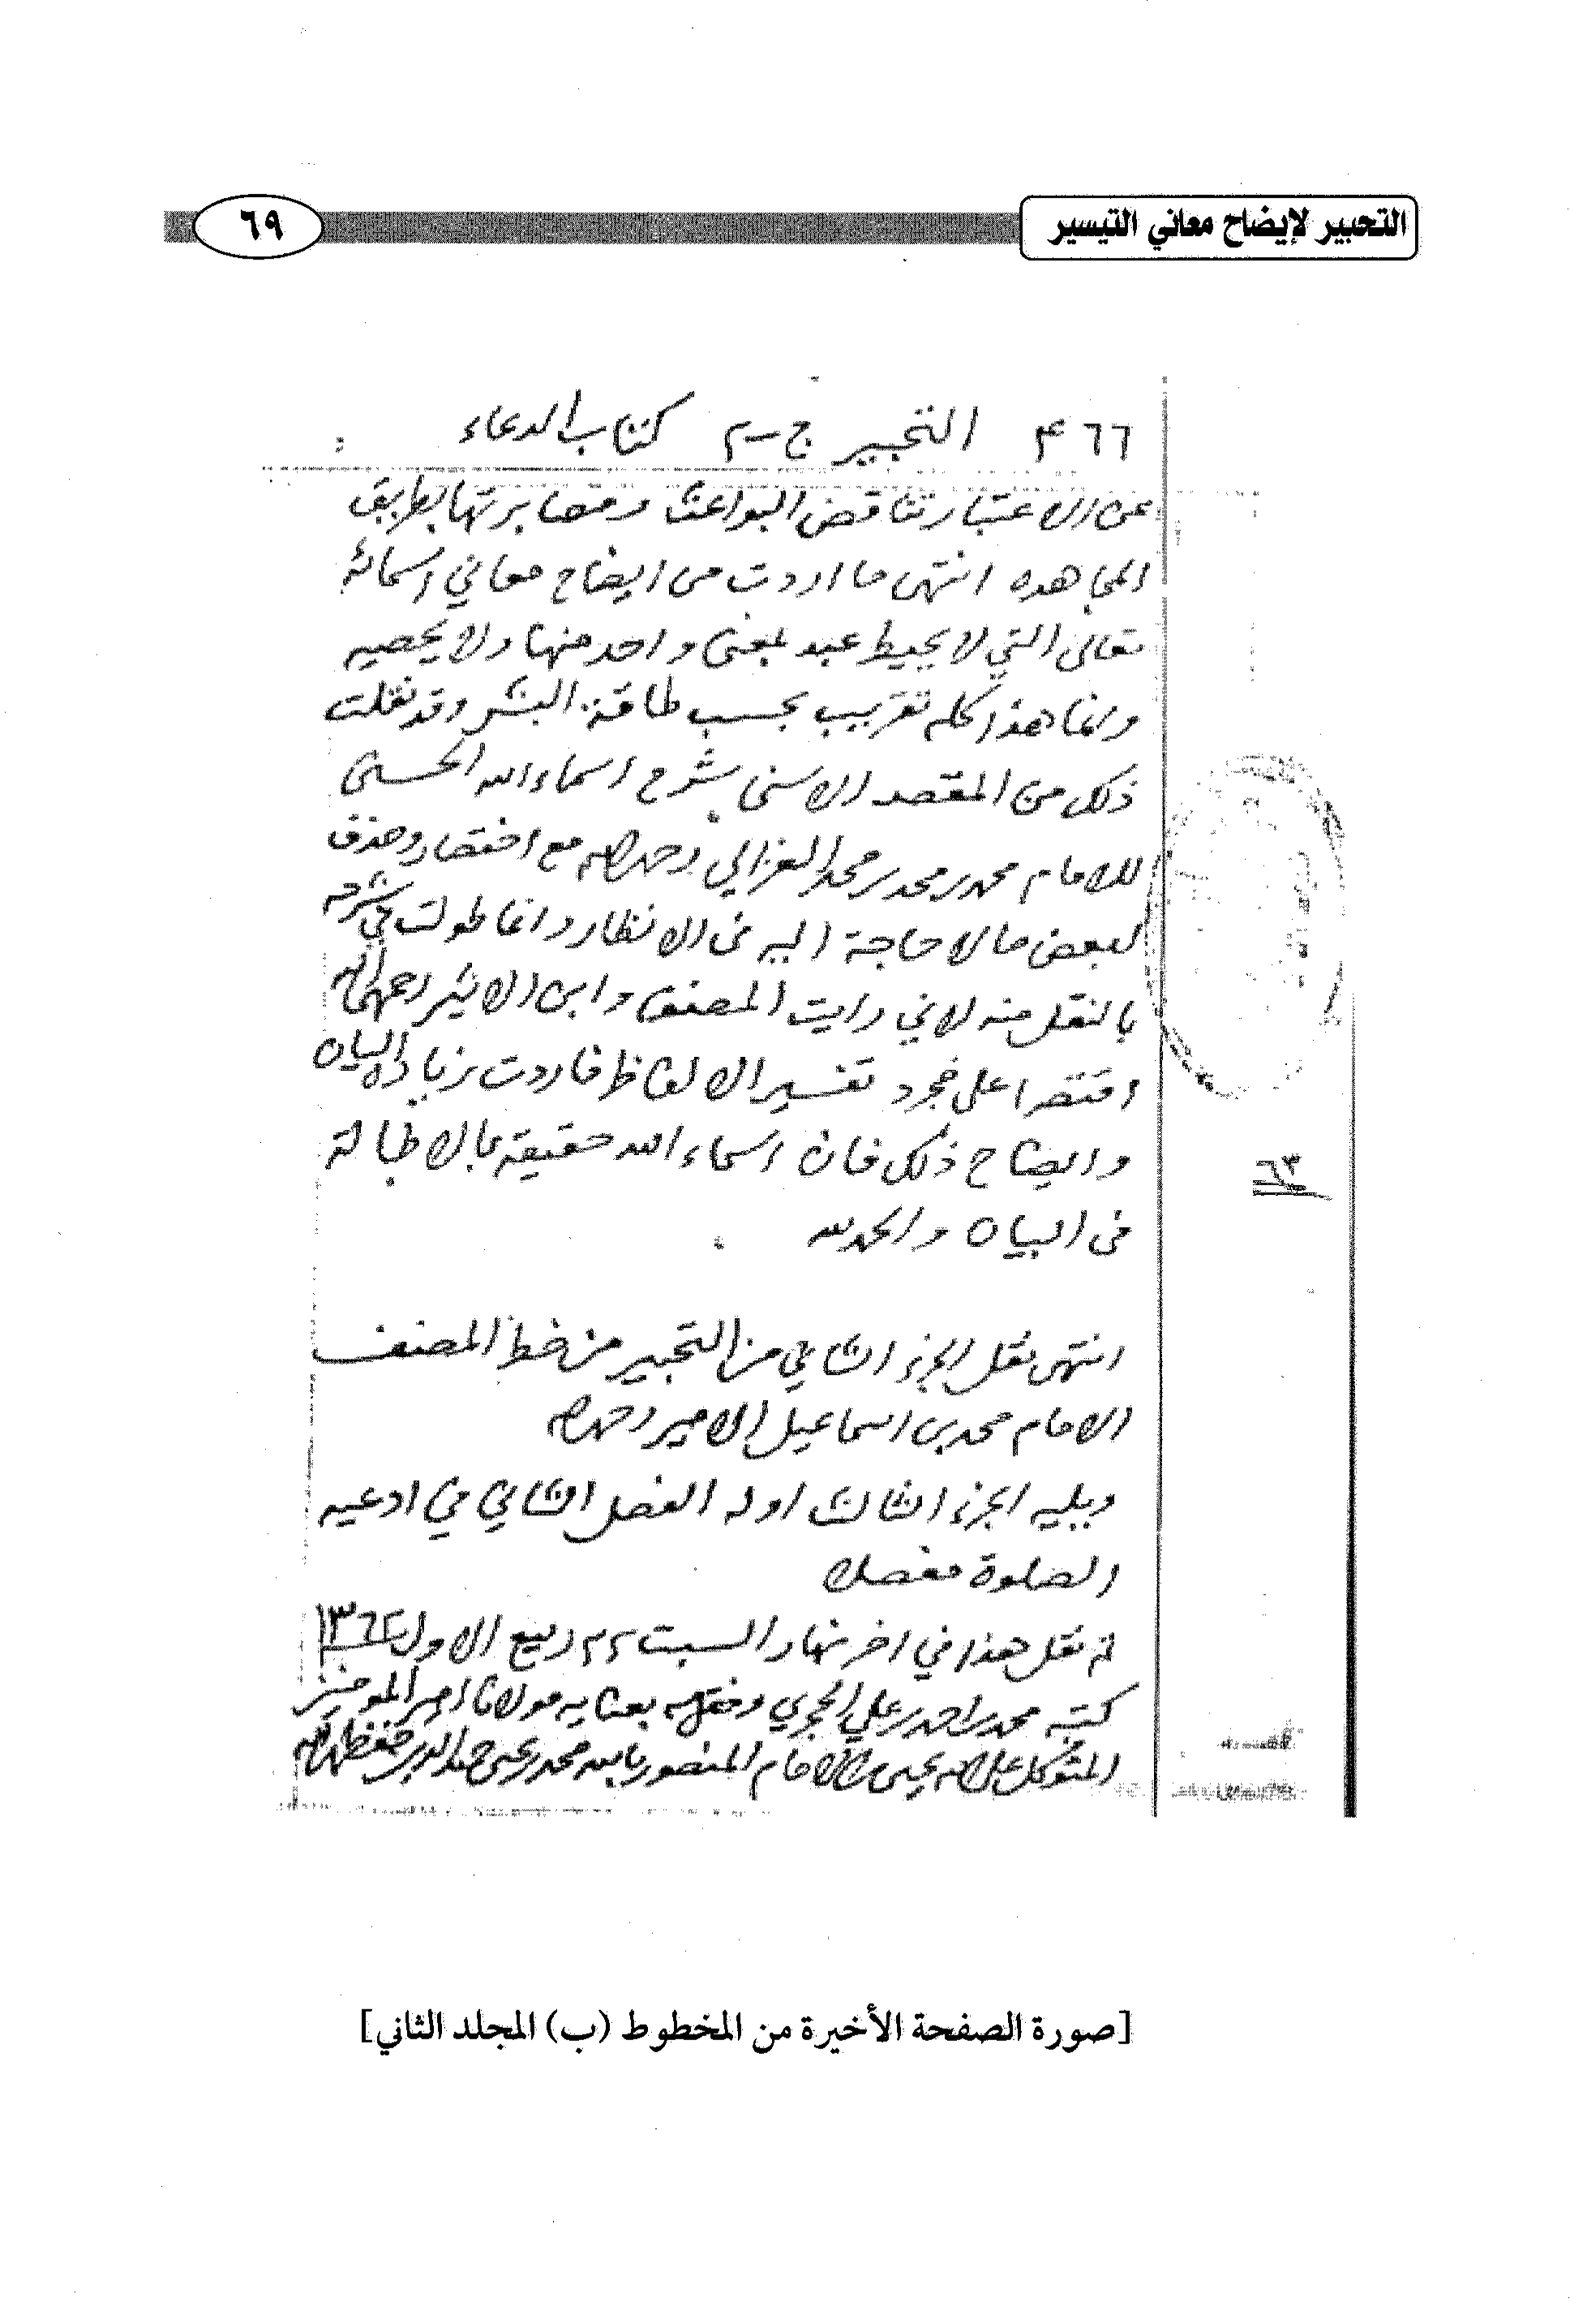 التحبير لإيضاح معاني التيسير
٦٩
٤٦٦ التحبير ج-٢ كتاب الدعاء
عن الاعتبار تناقض البواعث ومصابرتها بطريق
المجاهده انتهى ما اردت من ايضاح معاني اسمائه
تعالى التي لا يحيط عبد بمعنى واحد منها ولا يحصيه
وانما هذا كله تقريب بحسب طاقة البشر وقد نقلت
ذلك من المقصد الاسنى بشرح اسماء الله الحسنى
للامام محمد بن محمد بن محمد الغزالي رحمه الله مع اختصار وحذف
لبعض ما لا حاجة اليه في الانظار وانما طولت في شرحه
بالنقل منه لاني رايت المصنف وابن الاثير رحمهما الله
اقتصرا على مجرد تفسير الالفاظ فاردت زيادة البيان
وايضاح ذلك فان اسماء الله حقيقة بالاطالة
في البيان والحمد لله
٦٣
انتهى نقل الجزء الثاني من التحبير من خط المصنف
الامام محمد بن اسماعيل الامير رحمه الله
ويليه الجزء الثالث اوله الفصل الثاني في ادعيه
الصلوة مفصلا
تم نقل هذا في اخر نهار السبت ٢٢ ربيع الاول ١٣٦٢
كتبه محمد بن احمد بن علي الحجري وفقه الله بعنايه مولانا امير المومنين
المتوكل على الله يحيى بن الامام المنصور بالله محمد بن يحيى حميد الدين حفظهم الله
[صورة الصفحة الأخيرة من المخطوط (ب) المجلد الثاني]